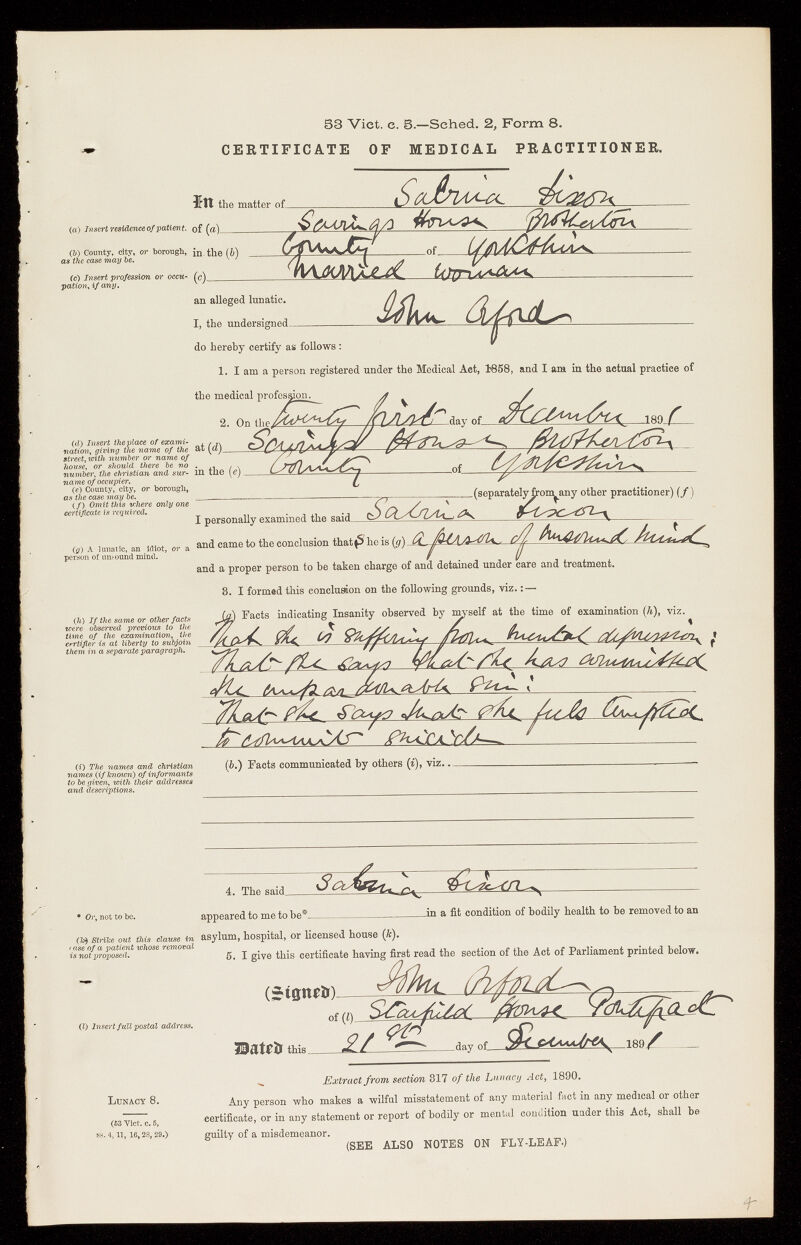 53 Vict. c. 5.—Sched. 2, Form 8.
CERTIFICATE OF MEDICAL PRACTITIONER.
In the matter of Sabrina Dixon
(a) Insert residence of patient. of (a) Savings House Brotherton
(b) County, city, or borough, as the case may be. in the (b) County of Yorkshire
(c) Insert profession or occupation, if any. (c) Married woman
an alleged lunatic.
I, the undersigned John Orford
do hereby certify as follows:
1. I am a person registered under the Medical Act, 1858, and I am in the actual practice of
the medical profession.
2. On the twenty first day of December 1891
(d) Insert the place of exami-
nation, giving the name of the
street, with number or name of
house, or should there be no
number, the christian and sur-
name of occupier.
at (d) Savings House Brotherton
in the (e) County of Yorkshire
(e) County, city, or borough,
as the case may be.
(f) Omit this where only one
certificate is required.
(separately from any other practitioner) (f)
I personally examined the said Sabrina Dixon
(g) A lunatic, an idiot, or a
person of unsound mind.
and came to the conclusion that She is (g) a person of unsound mind
and a proper person to be taken charge of and detained under care and treatment.
3. I formed this conclusion on the following grounds, viz.:—
(h) If the same or other facts
were observed previous to the
time of the examination, the
certifier is at liberty to subjoin
them in a separate paragraph.
(a) Facts indicating Insanity observed by myself at the time of examination (h), viz.
That she is suffering from mental depression:
That she says that she has committed
the unpardonable sin:
That she says that she feels tempted
to commit suicide
(i) The names and christian
names (if known) of informants
to be given, with their addresses
and descriptions.
(b.) Facts communicated by others (i), viz..
4. The said Sabrina Dixon
* Or, not to be.
appeared to me to be* in a fit condition of bodily health to be removed to an
(k) Strike out this clause in
case of a patient whose removal
is not proposed.
asylum, hospital, or licensed house (k).
5. I give this certificate having first read the section of the Act of Parliament printed below.
(Signed) John Orford
of (l) Starfield House Pontefract
(l) Insert full postal address.
Dated this 21st day of December 1891
Extract from section 317 of the Lunacy Act, 1890.
LUNACY 8.
(53 Vict. c. 5,
ss. 4, 11, 16, 28, 29.)
Any person who makes a wilful misstatement of any material fact in any medical or other
certificate, or in any statement or report of bodily or mental condition under this Act, shall be
guilty of a misdemeanor.
(SEE ALSO NOTES ON FLY-LEAF.)
4